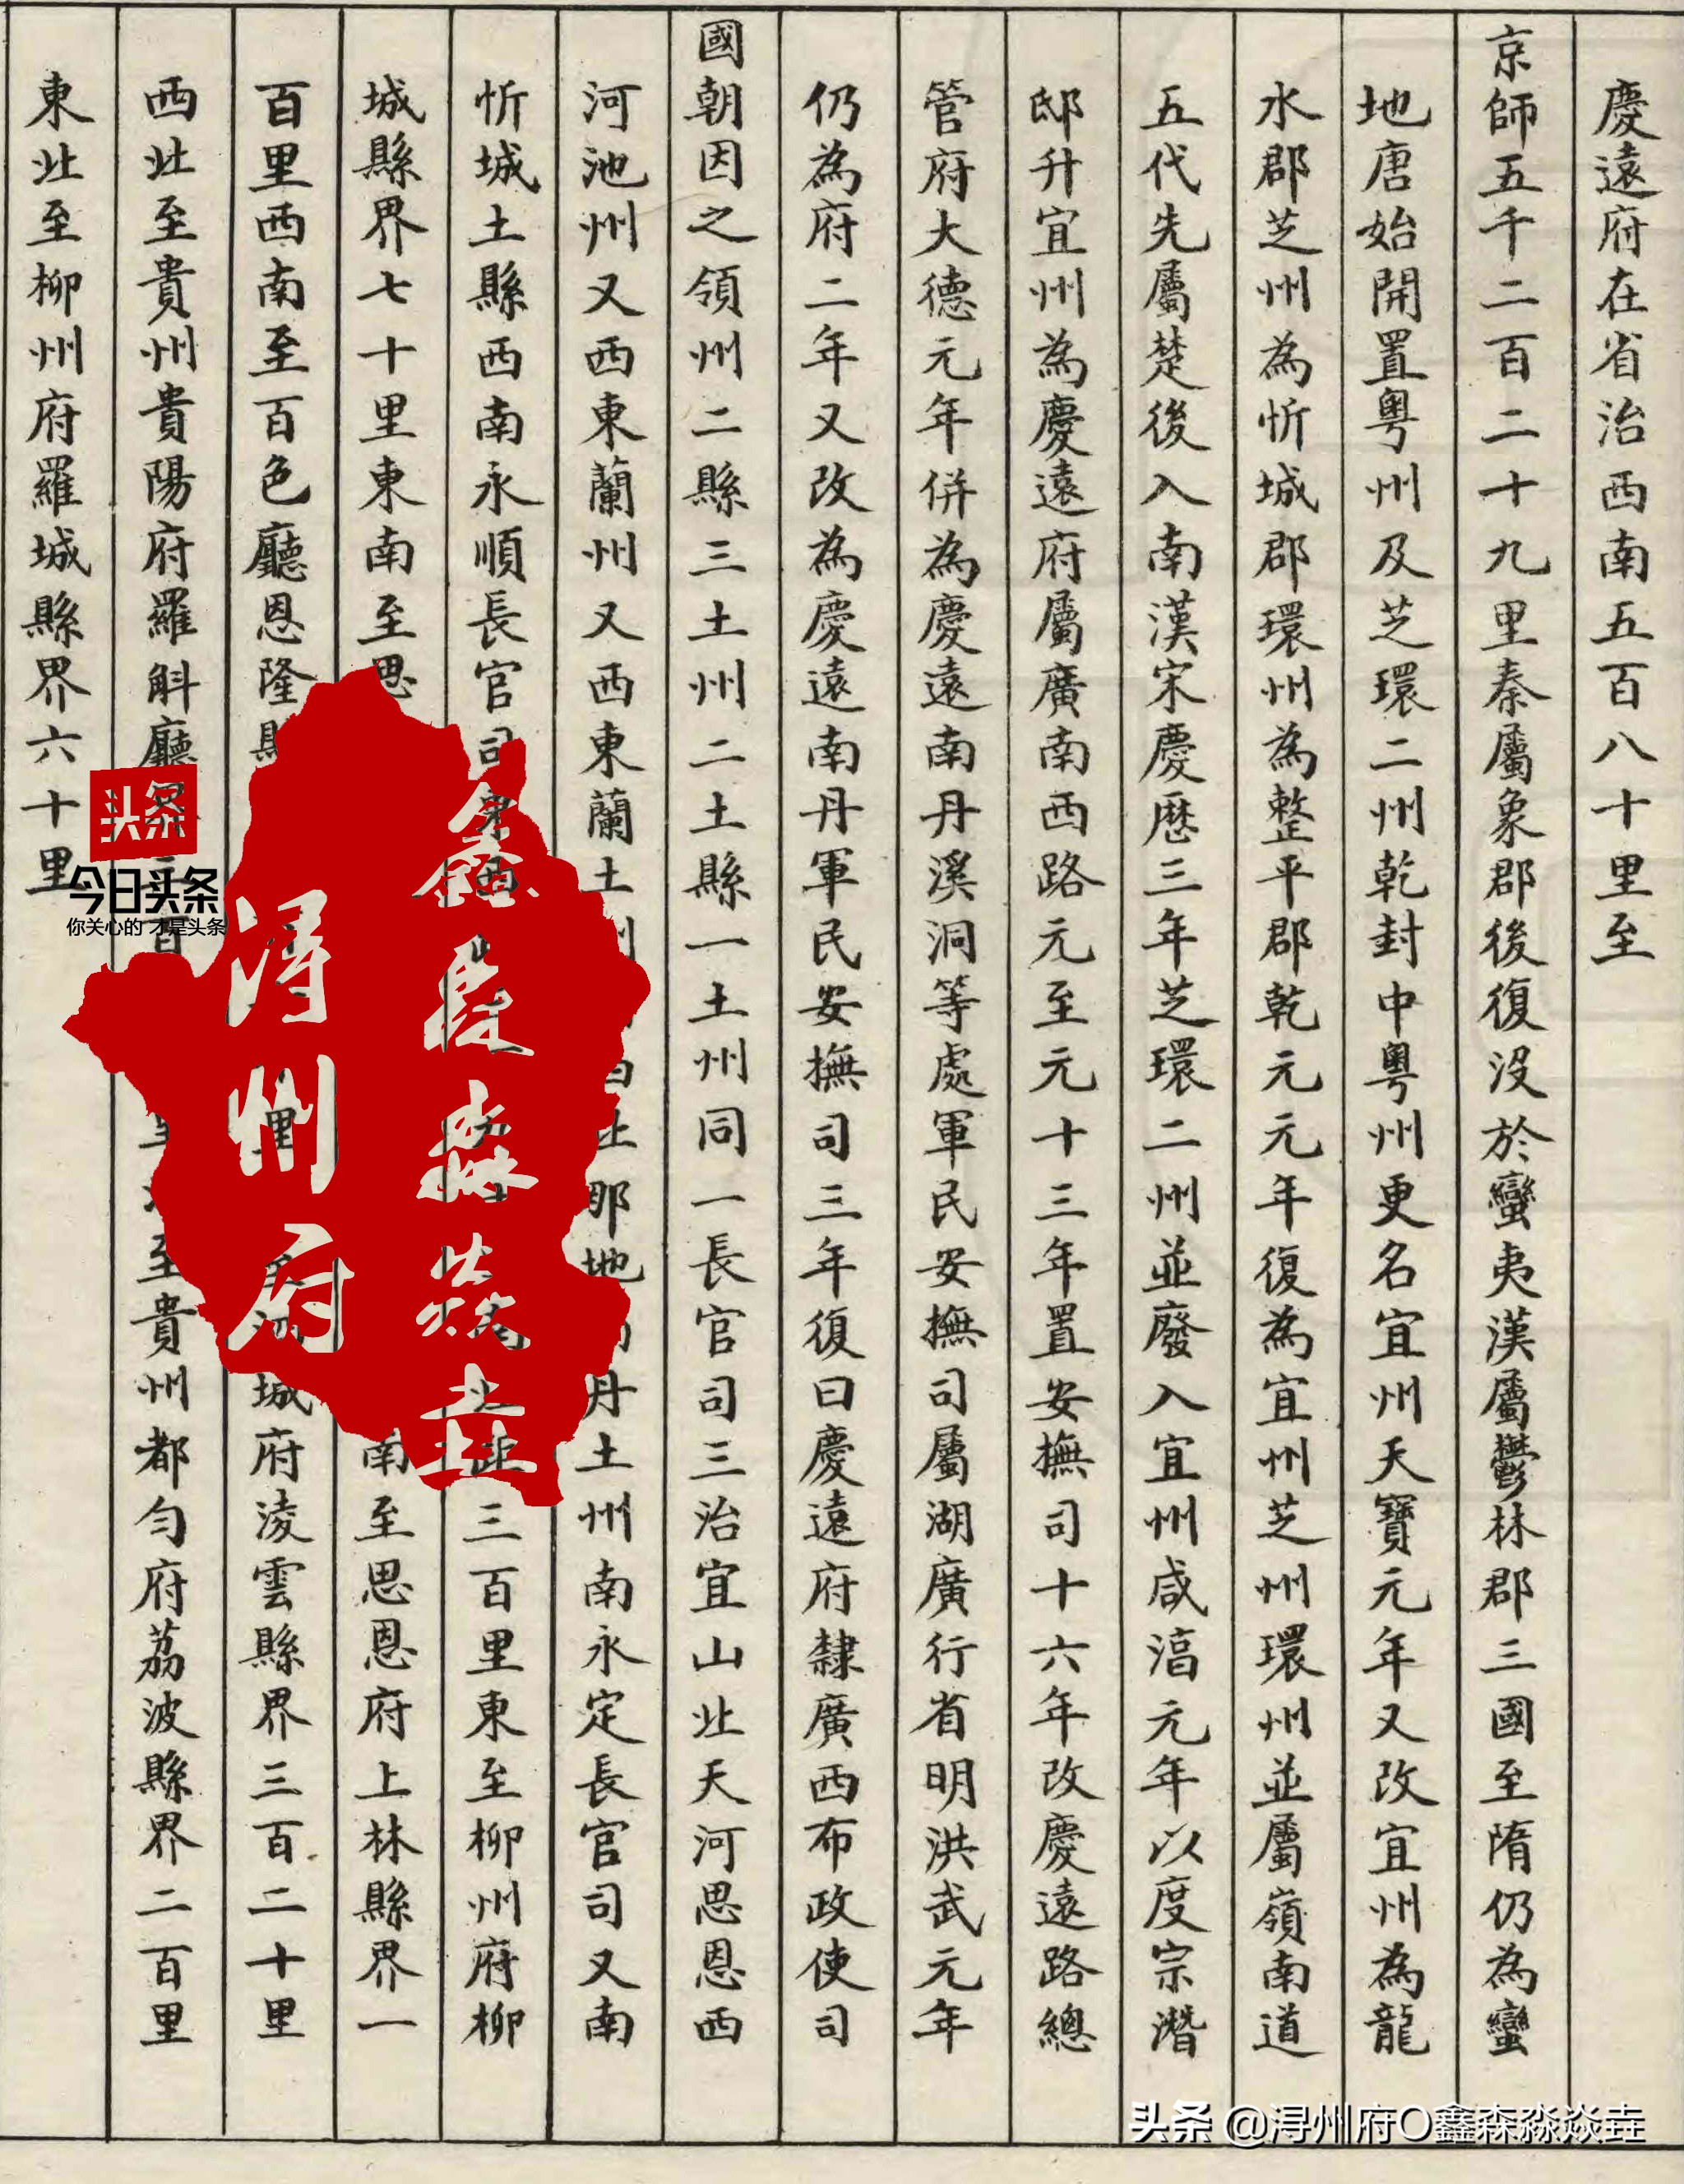 慶遠府在省治西南五百八十里至
京師五千二百二十九里秦屬象郡後復没於蠻夷漢屬鬱林郡三國至隋仍為蠻
地唐始開置粤州及芝環二州乾封中粤州更名宜州天寶元年又改宜州為龍
水郡芝州為忻城郡環州為整平郡乾元元年復為宜州芝州環州並屬嶺南道
五代先屬楚後入南漢宋慶歷三年芝環二州並廢入宜州咸淳元年以度宗潛
邸升宜州為慶遠府屬廣南西路元至元十三年置安撫司十六年改慶遠路總
管府大德元年併為慶遠南丹溪洞等處軍民安撫司屬湖廣行省明洪武元年
仍為府二年又改為慶遠南丹軍民安撫司三年復曰慶遠府隸廣西布政使司
國朝因之領州二縣三土州二土縣一土州同一長官司三治宜山北天河思恩西
河池州又西東蘭州又西東蘭土州那地丹土州南永定長官司又南
忻城土縣西南永順長官司三百里東至柳州府柳
城縣界七十里東南至思南至思恩府上林縣界一
百里西南至百色廳恩隆里城府淩雲縣界三百二十里
西北至貴州貴陽府羅斛廳百至貴州都勻府荔波縣界二百里
東北至柳州府羅城縣界六十里
鑫森淼焱垚
浔州府
头条
今日头条
你关心的 才是头条
头条 @浔州府O鑫森淼焱垚